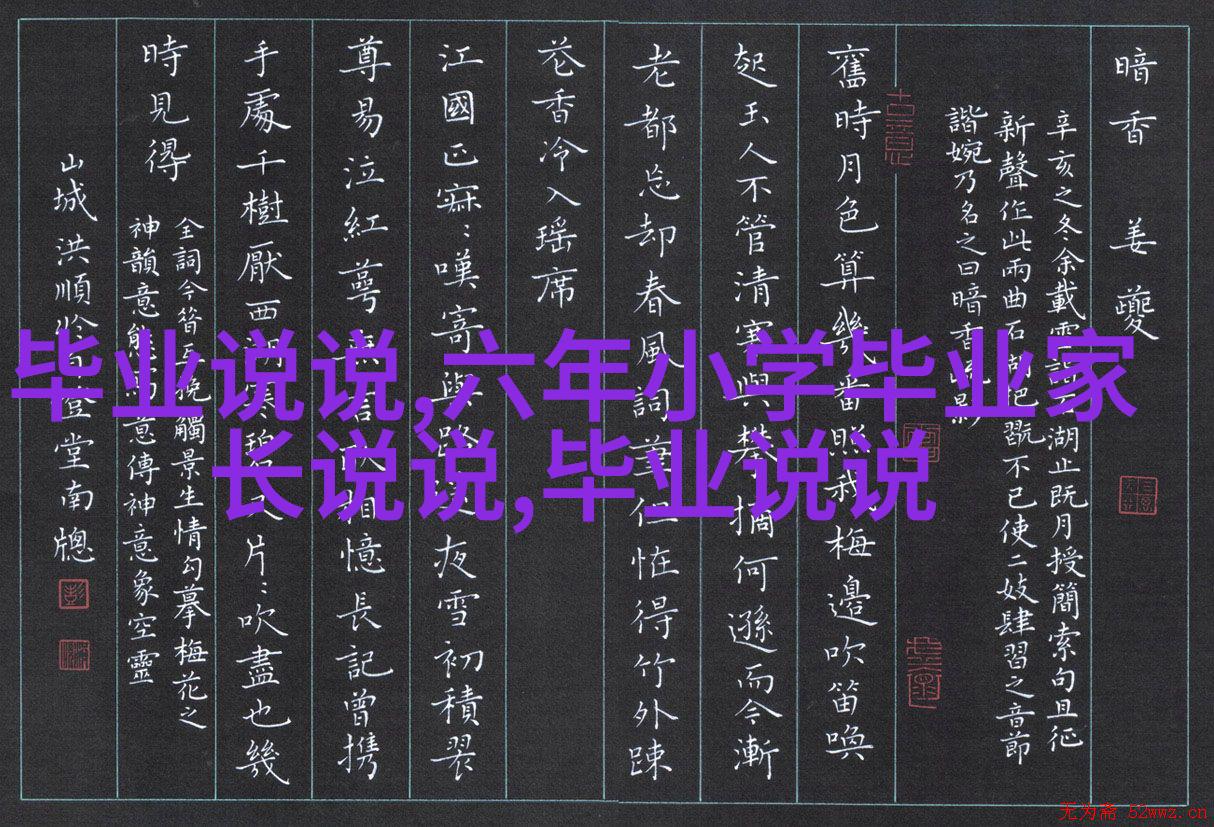 暗香 姜夔
辛亥之冬余載雪詣石湖止既月授簡索句且征
新聲作此兩曲石湖把翫不已使二妓肆習之音節
諧婉乃名之曰暗香疏影
舊時月色算幾番照我梅邊吹笛喚
起玉人不管清寒與攀摘何遜而今漸
老都忘却春風詞筆但恠得竹外疎
花香冷入瑶席
江國正寂:嘆寄與路遥夜雪初積翠
尊易泣紅萼無言耿相憶長記曾携
手處千樹厭西湖寒碧又片:吹盡也幾
時見得
全詞今昔 挽觸景生情勾摹梅花之
神韻意態 意傳神意象空靈
山城洪順 登堂南牕
古意
毕业说说,六年小学毕业家
长说说,毕业说说
无为斋 52wwz.cn